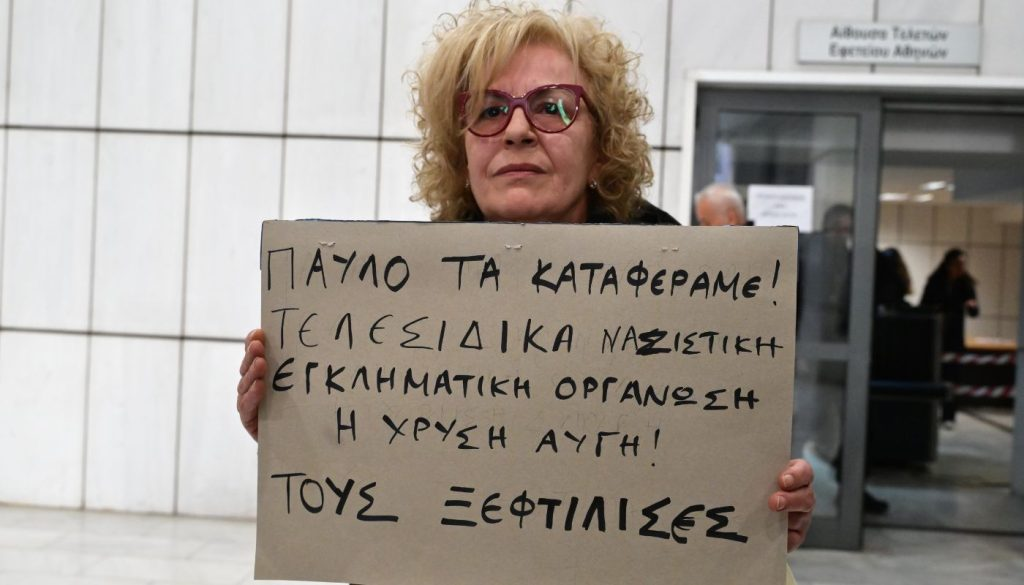 Αίθουσα Τελετών
Εφετείου Αθηνών
ΠΑΥΛΟ ΤΑ ΚΑΤΑΦΕΡΑΜΕ!
ΤΕΛΕΣΙΔΙΚΑ ΝΑΖΙΣΤΙΚΗ
ΕΓΚΛΗΜΑΤΙΚΗ ΟΡΓΑΝΩΣΗ
Η ΧΡΥΣΗ ΑΥΓΗ!
ΤΟΥΣ ΞΕΦΤΙΛΙΣΕΣ